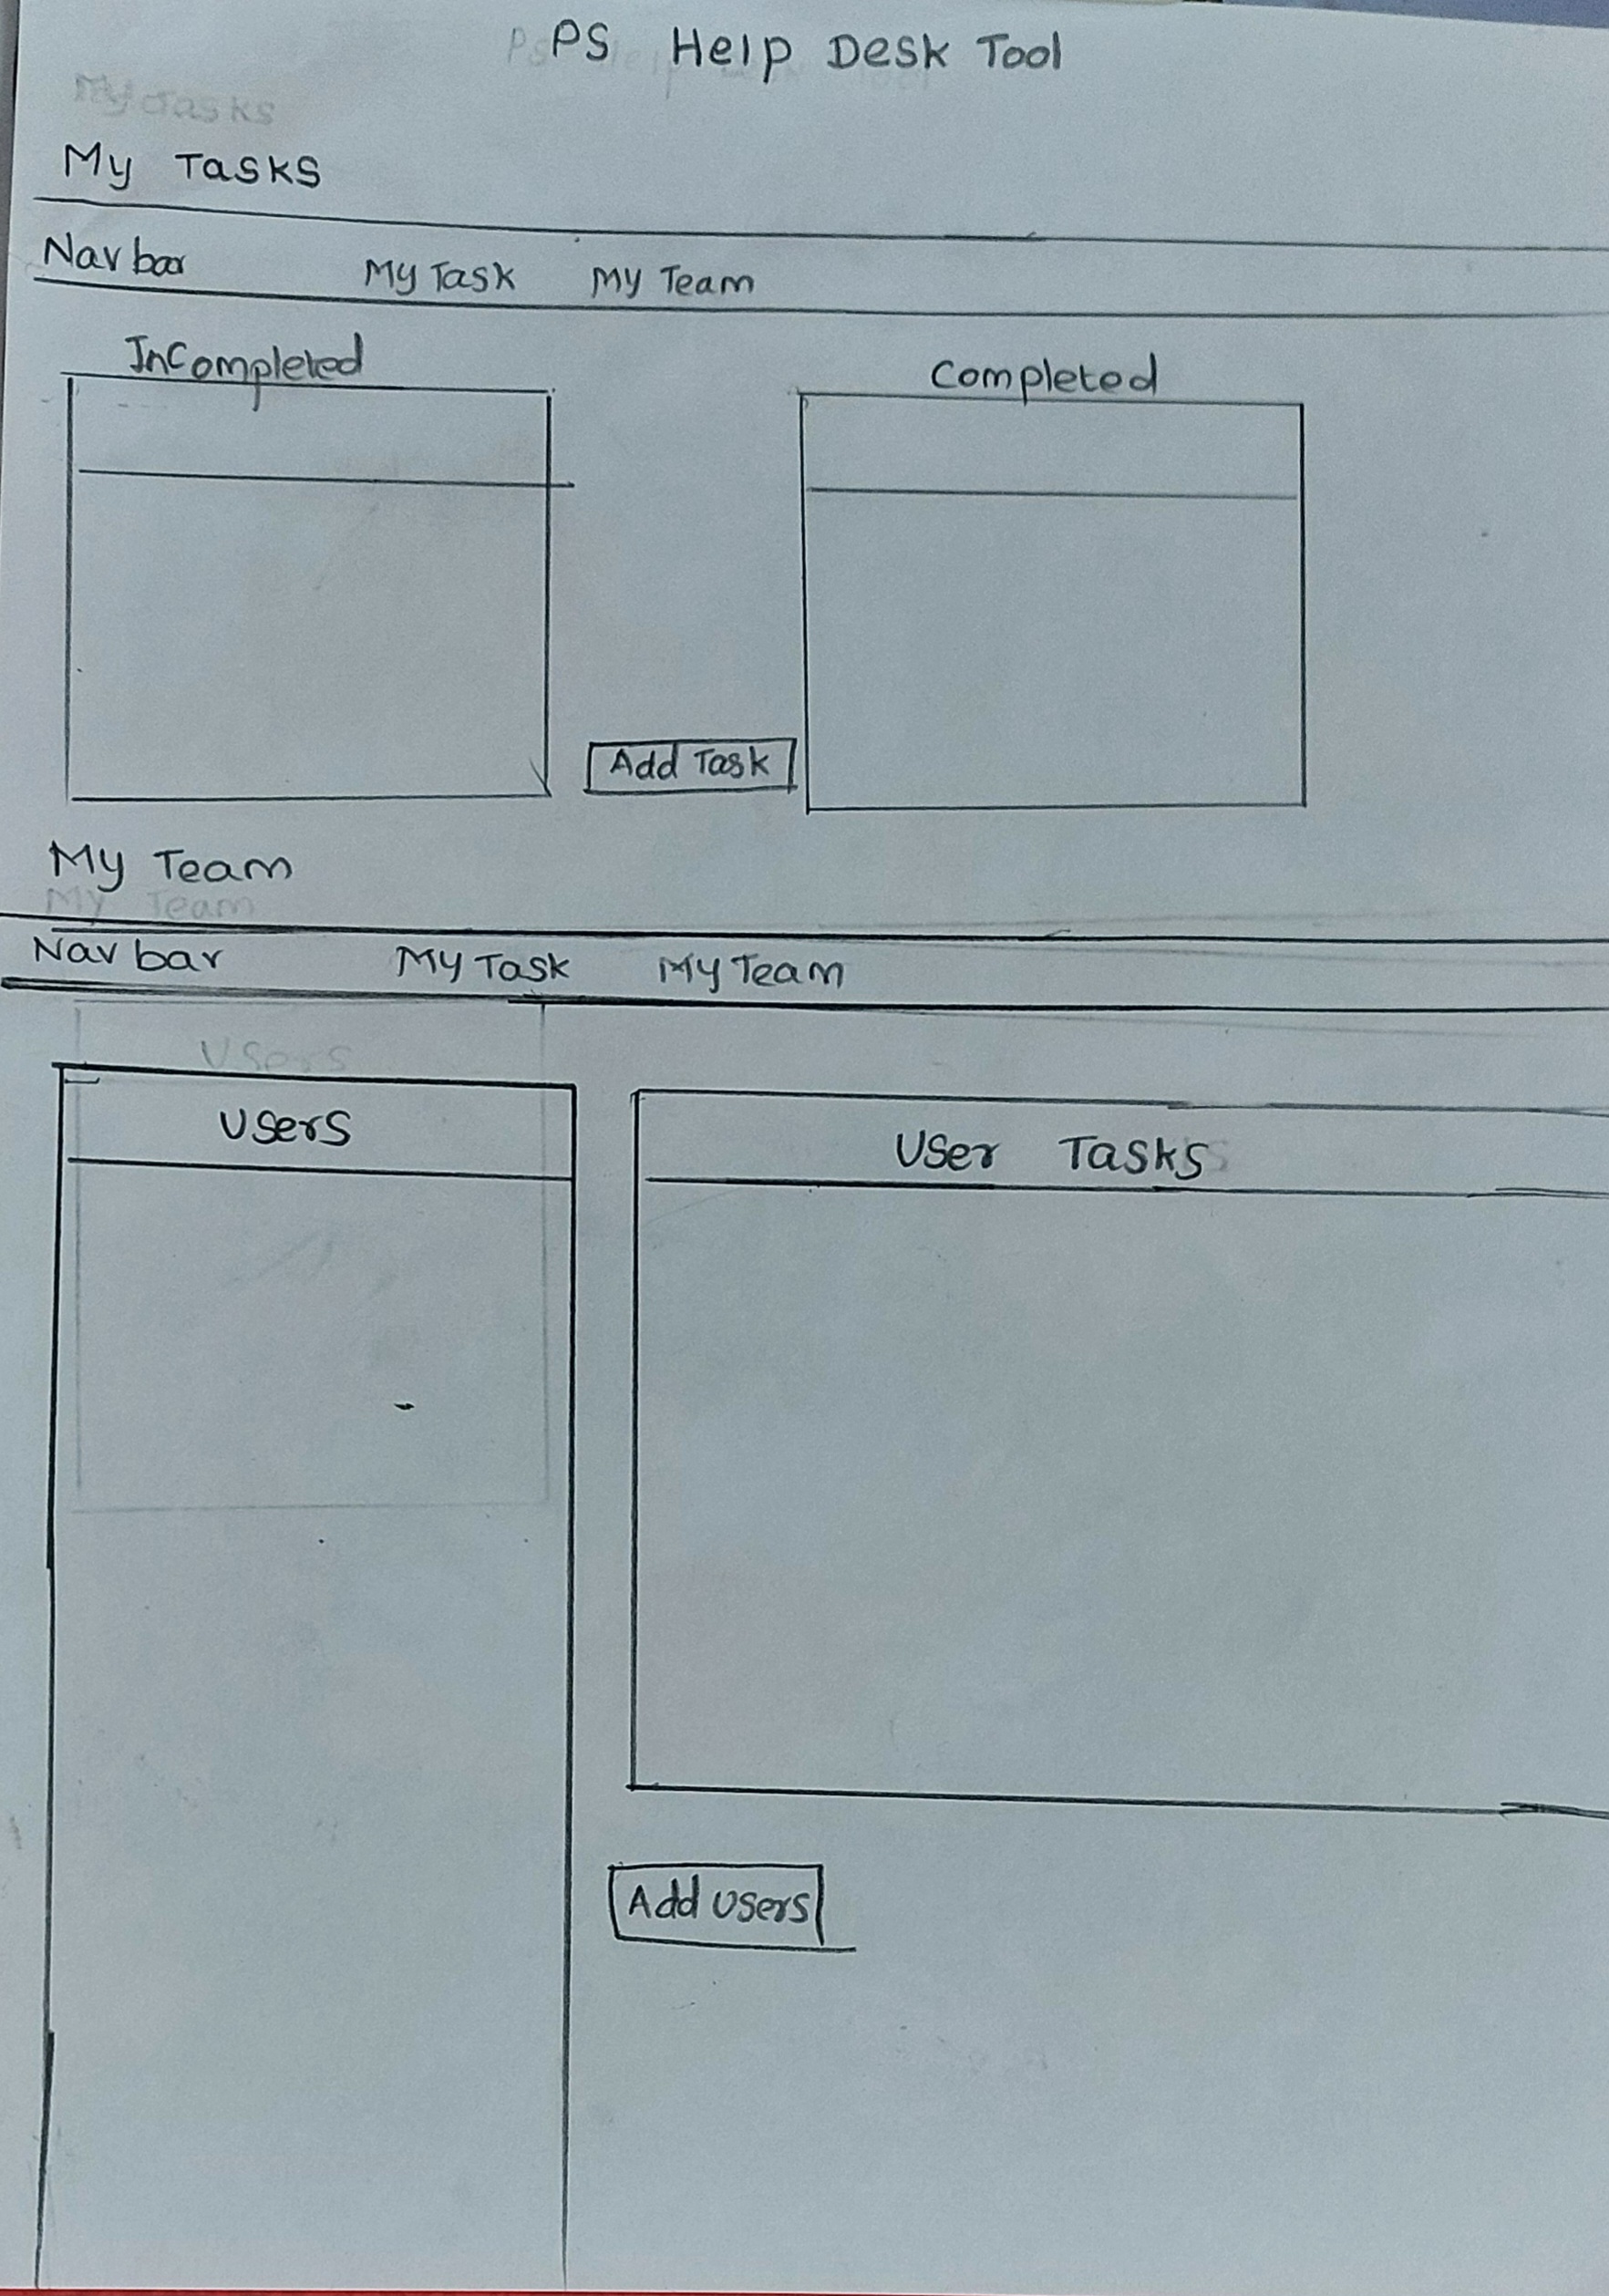 PS Help Desk Tool
My Tasks
My Tasks
Nav bar My Task My Team
InCompleted Completed
Add Task
My Team
My Team
Nav bar My Task My Team
Users
Users User Tasks
Add Users